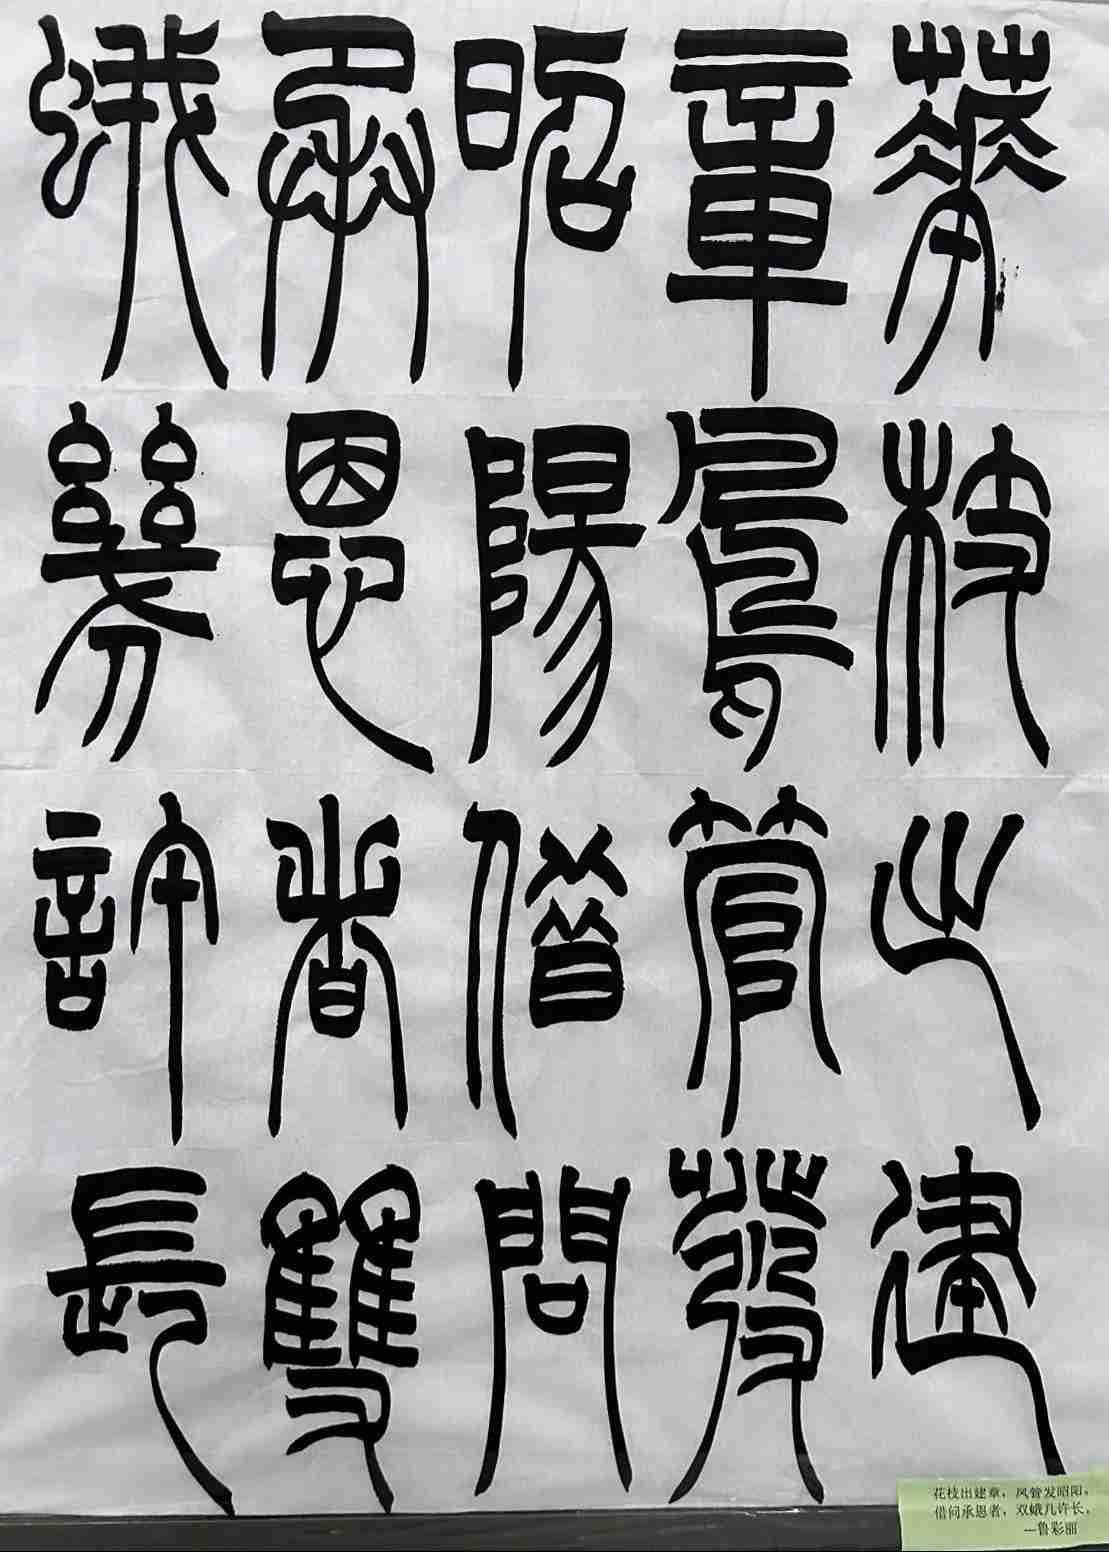 華枝出建
章鳳管發
昭陽借問
承恩者雙
蛾幾許長
花枝出建章，凤管发昭阳。
借问承恩者，双蛾几许长。
—鲁彩丽